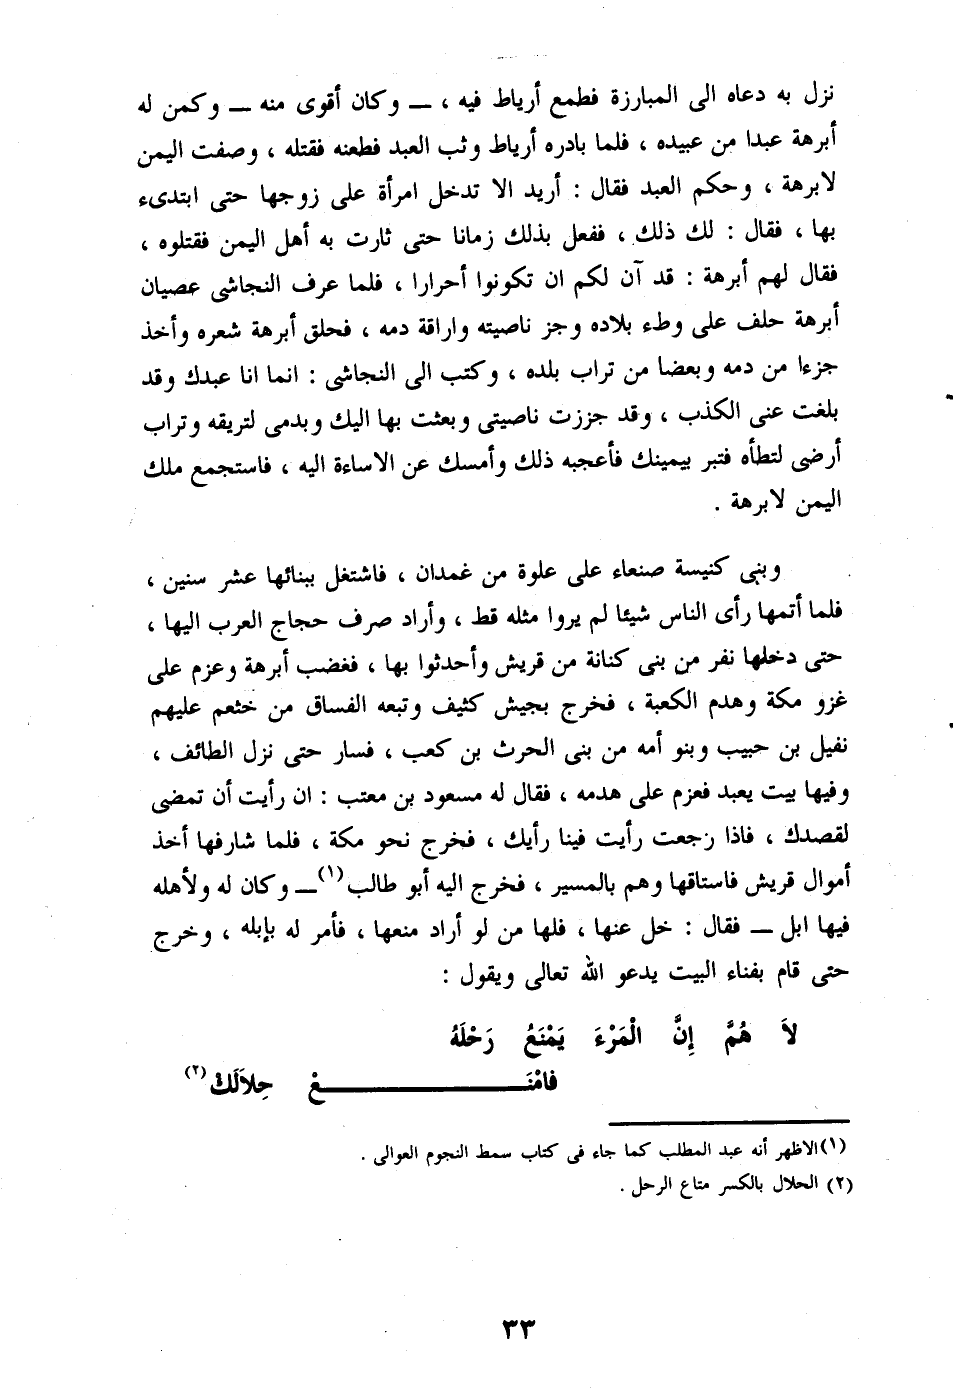 نزل به دعاه الى المبارزة فطمع أرياط فيه ، ــ وكان أقوى منه ــ وكمن له
أبرهة عبدا من عبيده ، فلما بادره أرياط وثب العبد فطعنه فقتله ، وصفت اليمن
لابرهة ، وحكم العبد فقال : أريد الا تدخل امرأة على زوجها حتى ابتدىء
بها ، فقال : لك ذلك ، ففعل بذلك زمانا حتى ثارت به أهل اليمن فقتلوه ،
فقال لهم أبرهة : قد آن لكم ان تكونوا أحرارا ، فلما عرف النجاشى عصيان
أبرهة حلف على وطء بلاده وجز ناصيته واراقة دمه ، فحلق أبرهة شعره وأخذ
جزءا من دمه وبعضا من تراب بلده ، وكتب الى النجاشى : انما انا عبدك وقد
بلغت عنى الكذب ، وقد جززت ناصيتى وبعثت بها اليك وبدمى لتريقه وتراب
أرضى لتطأه فتبر بيمينك فأعجبه ذلك وأمسك عن الاساءة اليه ، فاستجمع ملك
اليمن لابرهة .
وبنى كنيسة صنعاء على علوة من غمدان ، فاشتغل ببنائها عشر سنين ،
فلما أتمها رأى الناس شيئا لم يروا مثله قط ، وأراد صرف حجاج العرب اليها ،
حتى دخلها نفر من بنى كنانة من قريش وأحدثوا بها ، فغضب أبرهة وعزم على
غزو مكة وهدم الكعبة ، فخرج بجيش كثيف وتبعه الفساق من خثعم عليهم
نفيل بن حبيب وبنو أمه من بنى الحرث بن كعب ، فسار حتى نزل الطائف ،
وفيها بيت يعبد فعزم على هدمه ، فقال له مسعود بن معتب : ان رأيت أن تمضى
لقصدك ، فاذا رجعت رأيت فينا رأيك ، فخرج نحو مكة ، فلما شارفها أخذ
أموال قريش فاستاقها وهم بالمسير ، فخرج اليه أبو طالب (١) ــ وكان له ولأهله
فيها ابل ــ فقال : خل عنها ، فلها من لو أراد منعها ، فأمر له بإبله ، وخرج
حتى قام بفناء البيت يدعو الله تعالى ويقول :
لاَ هُمَّ إِنَّ الْمَرْءَ يَمْنَعُ رَحْلَهُ
فامْنَـــــــــــعْ حِلاَلَكْ (٢)
(١) الاظهر أنه عبد المطلب كما جاء فى كتاب سمط النجوم العوالى .
(٢) الحلال بالكسر متاع الرحل .
٣٣